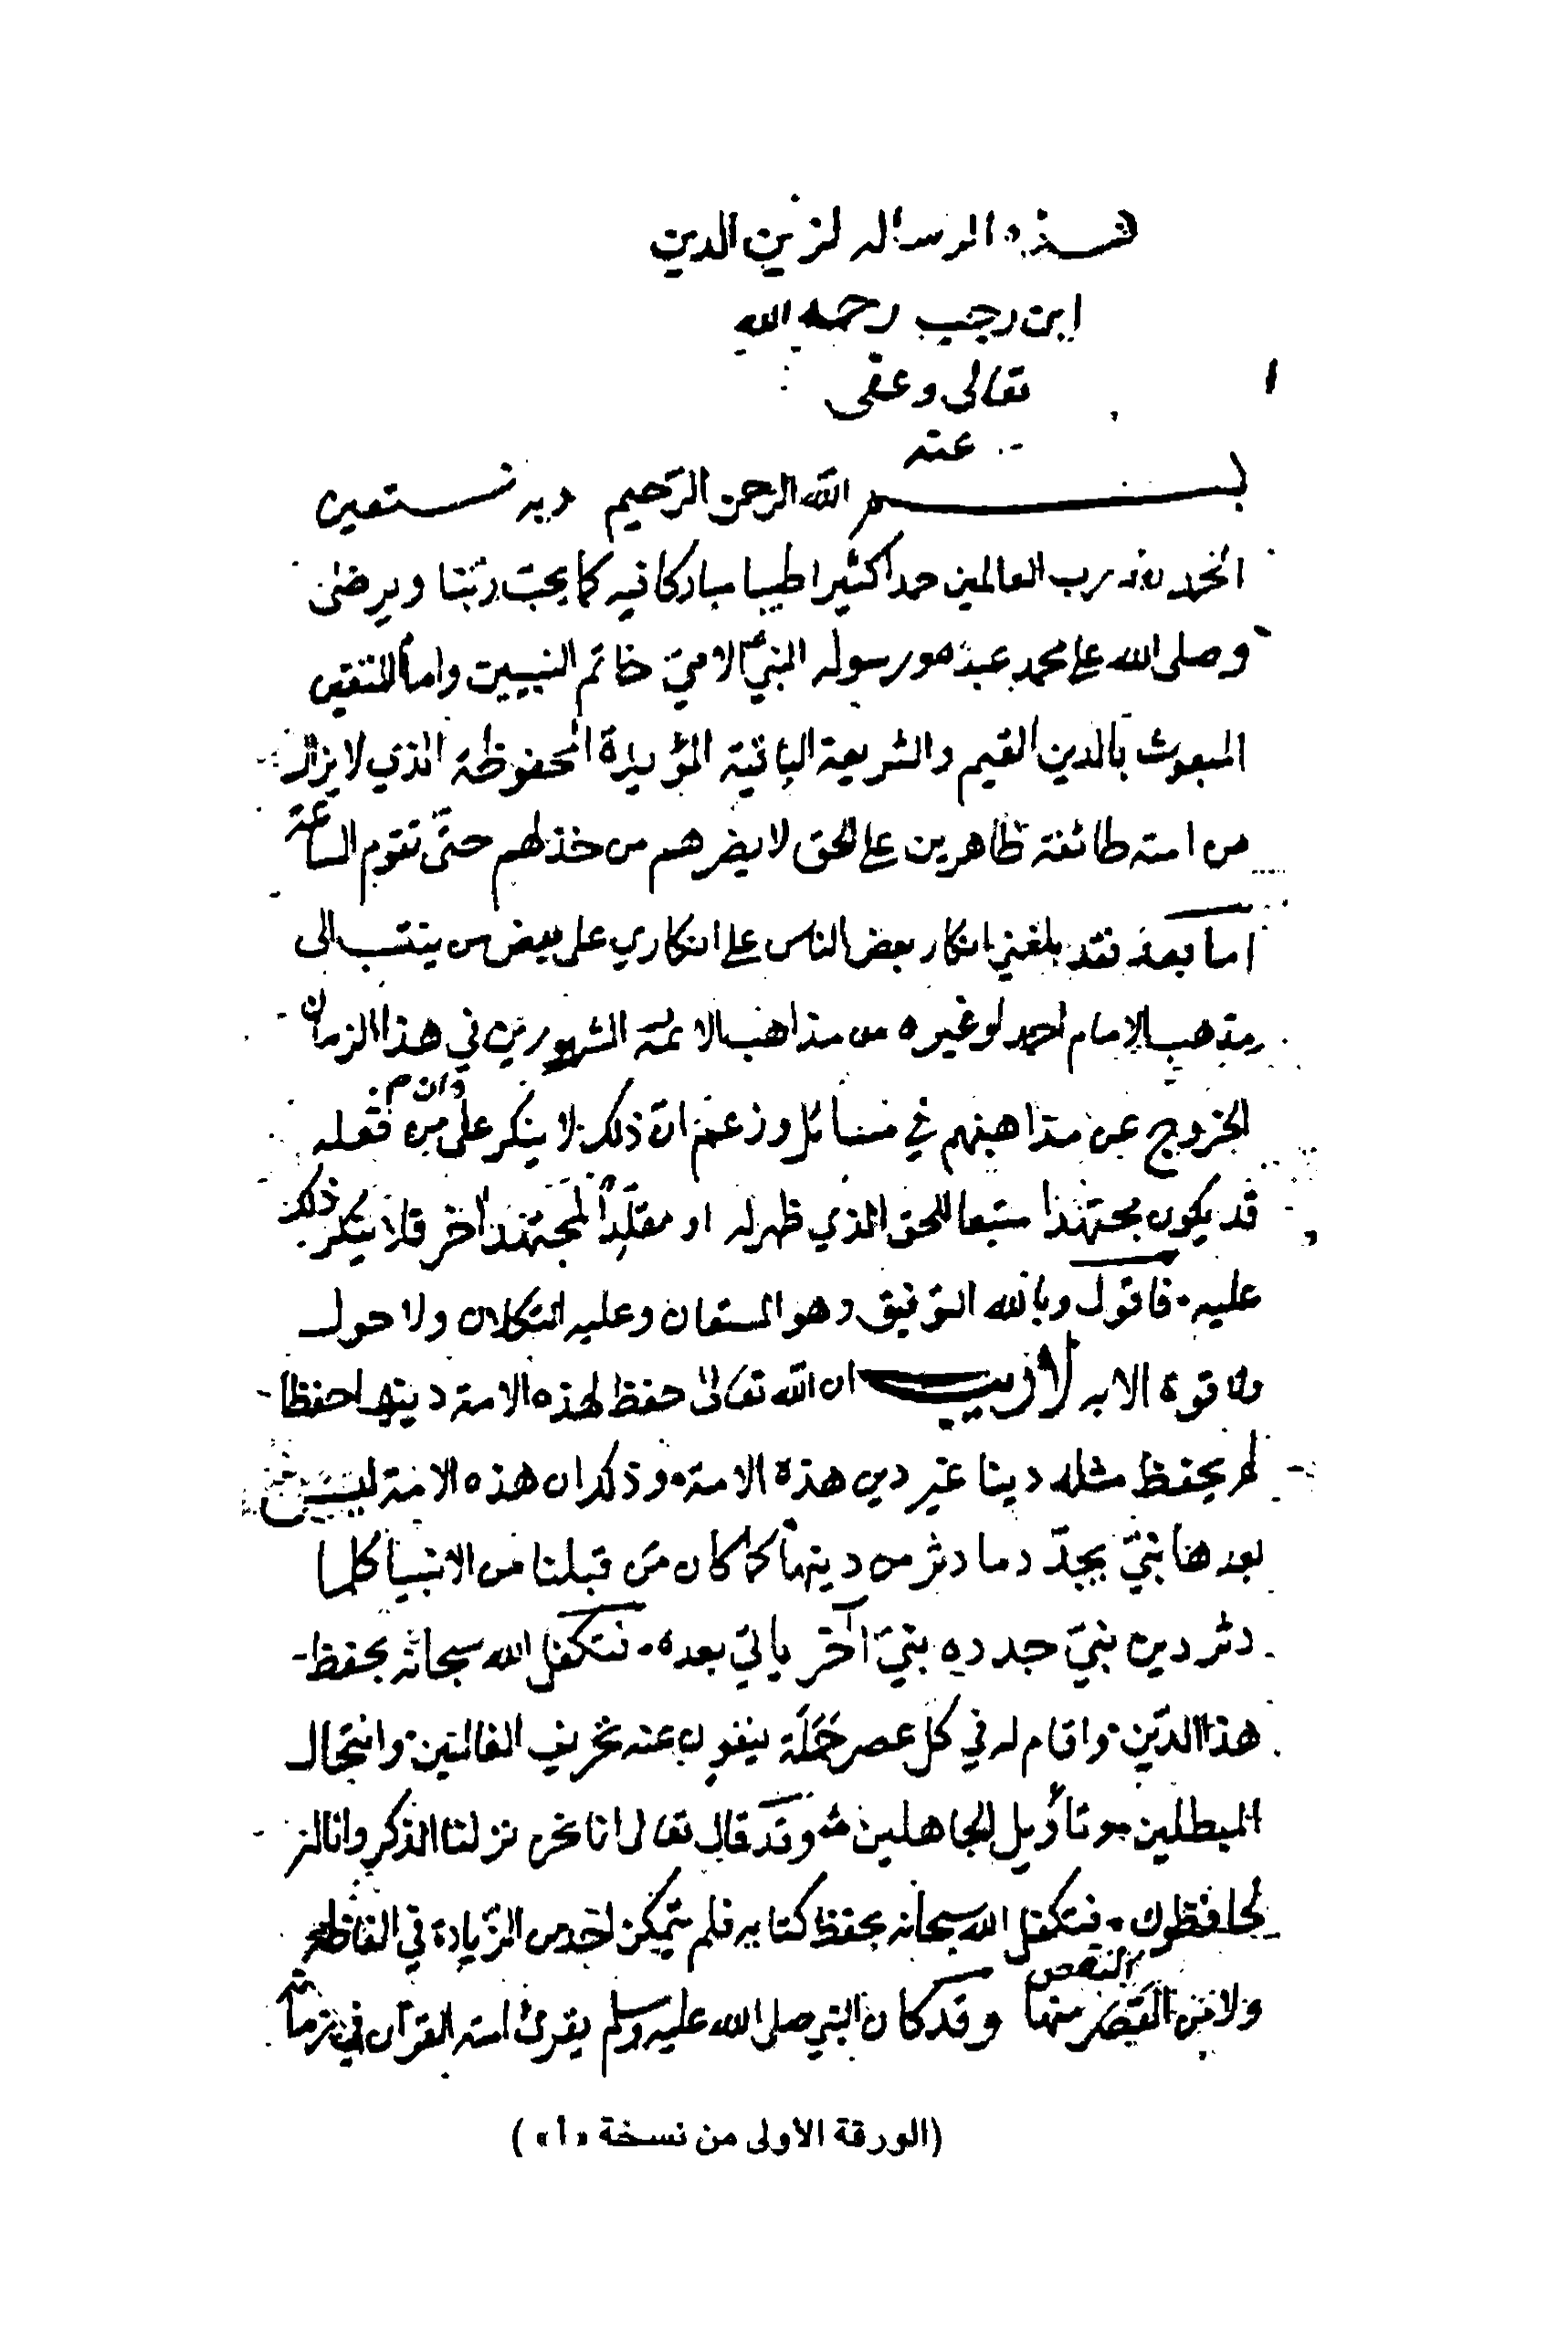 هذه الرساله لزين الدين
ابن رجب رحمه الله
تعالى وعفى
عنه
١
بسم الله الرحمن الرحيم وبه نستعين
الحمد لله رب العالمين حمدا كثيرا طيبا مباركا فيه كما يحبّ ربّنا ويرضى
وصلى الله على محمد عبده ورسوله النبيّ الاميّ خاتم النبيين وامام المتقين
المبعوث بالدين القيم والشريعة الباقية المؤيدة المحفوظة الذي لا يزال
من امته طائفة ظاهرين على الحق لا يضرهم من خذلهم حتّى تقوم الساعة
اما بعد فقد بلغني انكار بعض الناس على انكاري على بعض من ينتسب الى
مذهب الامام احمد او غيره من مذاهب الائمّة المشهورين في هذا الزمان
الخروج عن مذاهبهم في مسائل وزعم انّ ذلك لا ينكر على من فعله
وان م
قد يكون مجتهدا متبعا للحق الذي ظهر له او مقلّدًا لمجتهد اخر فلا ينكر ذلك
عليه فاقول وبالله التوفيق وهو المستعان وعليه التكلان ولا حول
ولا قوة الا به لا ريب ان الله تعالى حفظ لهذه الامة دينها حفظا
لم يحفظ مثله دينا غير دين هذه الامة وذلك ان هذه الامة ليس
بعدها نبيّ يجدّد ما دثر من دينها كما كان من قبلنا من الانبيا كلما
دثر دين نبيّ جدده نبيّ آخر ياتي بعده فتكفل الله سبحانه بحفظ
هذا الدّين واقام له في كل عصر حَمَلَة ينفون عنه تحريف الغالين وانتحال
المبطلين وتأويل الجاهلين وقد قال تعالى انا نحن نزلنا الذكر وانا له
لحافظون فتكفل الله سبحانه بحفظ كتابه فلم يتمكن احد من الزّيادة في الفاظه
ولا من النقص منها وقد كان النبي صلى الله عليه وسلم يقرئ امته القرآن في زمانه
النقص
(الورقة الأولى من نسخة «أ»)